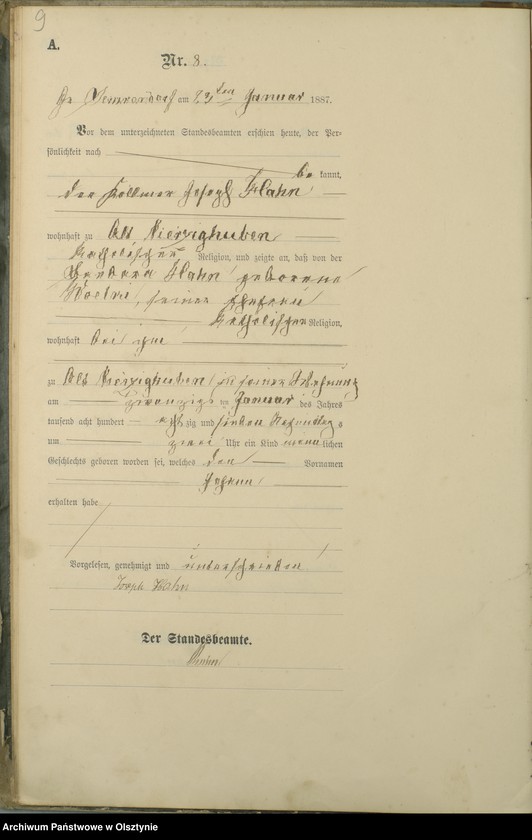 9
A.
Nr. 8.
am 23ten Januar 1887.
Vor dem unterzeichneten Standesbeamten erschien heute, der Per-
sönlichkeit nach
be kannt,
der Köllmer Joseph Hahn
wohnhaft zu Alt Vierzighuben
katholischer Religion, und zeigte an, daß von der
Barbara Hahn geborene
seiner Ehefrau
katholischer Religion,
wohnhaft bei ihm
zu Alt Vierzighuben in seiner Wohnung
am zwanzigs ten Januar des Jahres
tausend acht hundert acht zig und sieben Nachmittags
um zwei Uhr ein Kind männ lichen
Geschlechts geboren worden sei, welches den Vornamen
Johann
erhalten habe
Vorgelesen, genehmigt und unterschrieben
Joseph Hahn
Der Standesbeamte.
Archiwum Państwowe w Olsztynie